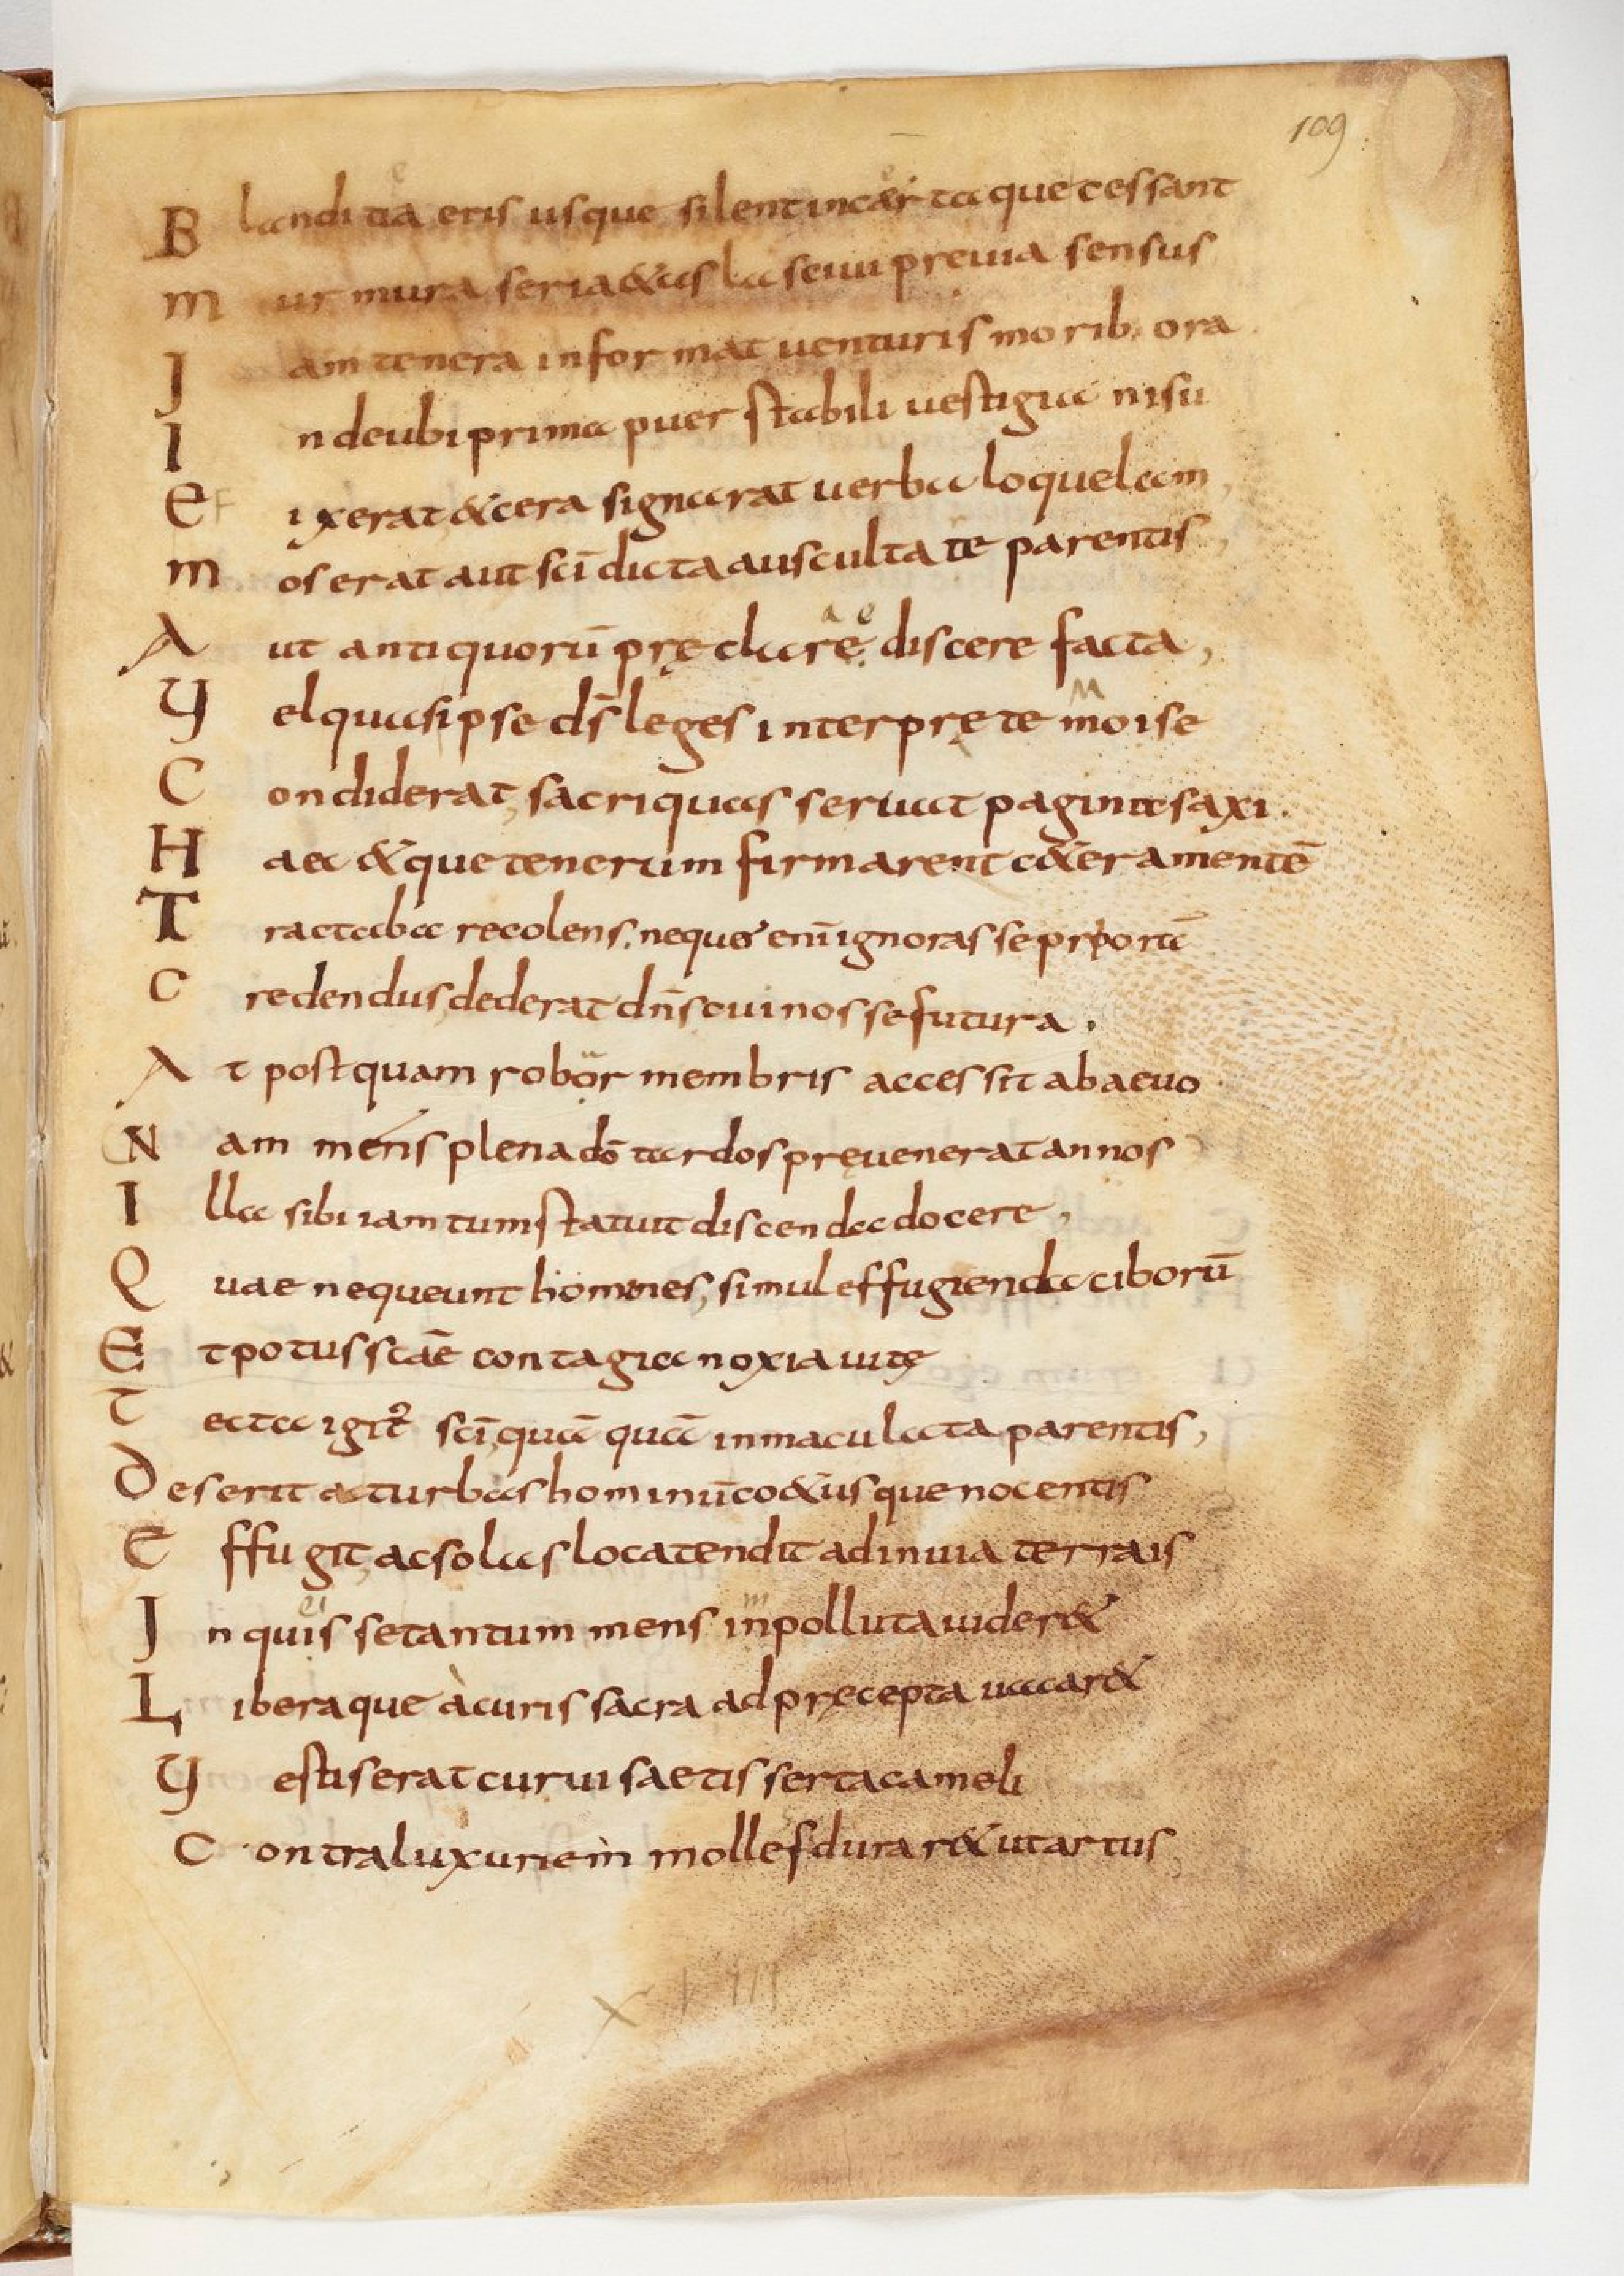 109
B landitia eris usque silent incertaque cessant
m urmura seria & as lasciui preuia sensus
J am tenera informat uenturis morib; ora
I nde ubi prima puer stabili uestigia nisu
E ixerat & cera signarat uerba loquelam,
m os erat aut sc̄i dicta auscultate parentis,
A ut antiquorū pręclare discere facta,
V el qua sipse d̄s leges interpręte moise
C ondiderat, sacri quas seruat pagina saxi.
H aec & que tenerum firmarent c&era mentē
T ractaba recolens. neque enī ignoras se prporta
C redendus, dederat dn̄s cui nosse futura.
A t postquam robor membris accessit ab aeuo
N am mens plena dō tardos pręuenerat annos
I lla sibi iam tum statuit discenda docere,
Q uae nequeunt homines, simul effugienda ciborū
E t potus sc̄ae contagia noxia uitę
T ecta igit̉ sc̄i, quā quā inmaculata parentis,
D eserit ac turbas hominū co&usque nocentis
E ffugit, ac solas loca tendit ad inuia terrais
J n quis se tantum mens inpolluta uider&
L iberaque à curis sacra ad pręcepta uacar&
V estis erat curui saetis serta cameli
C ontra luxuriem molles durar& ut artus,
XVIII